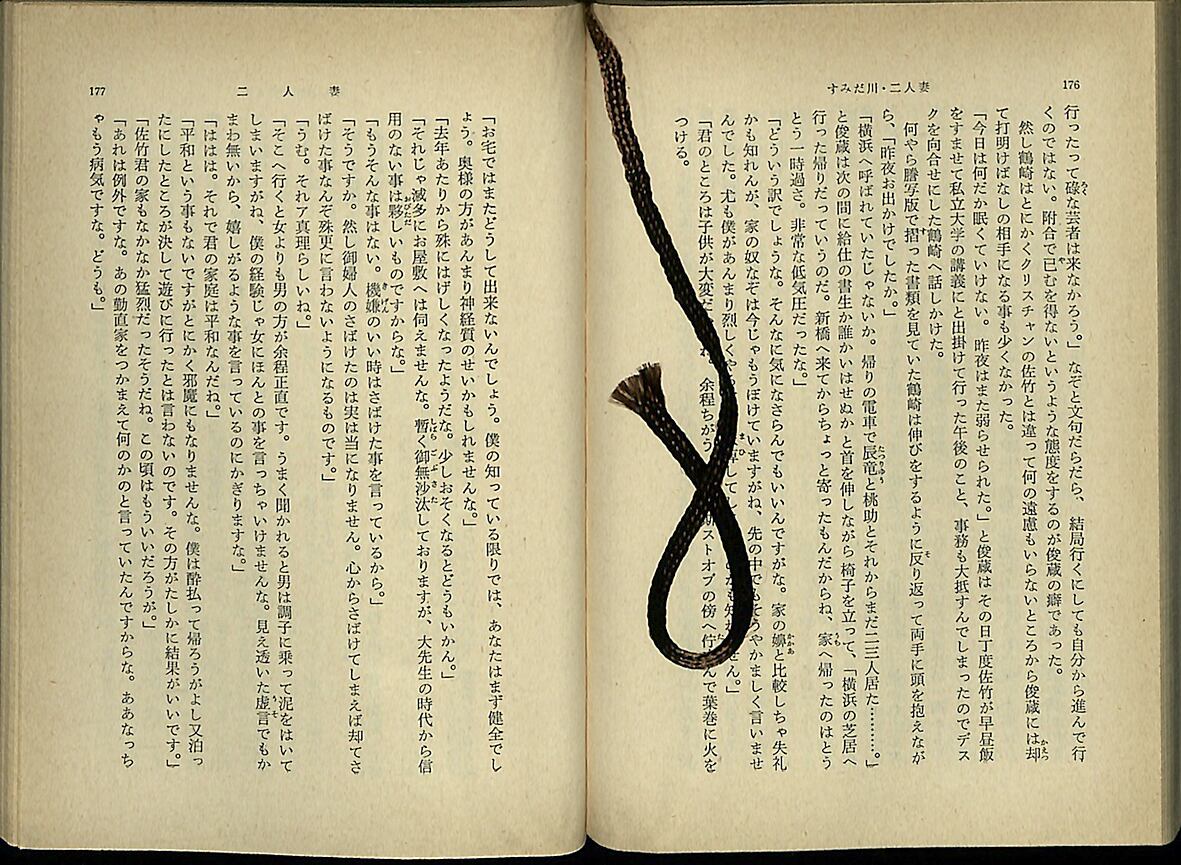 176
すみだ川・二人妻
行ったって碌な芸者は来なかろう。」なぞと文句だらだら、結局行くにしても自分から進んで行
くのではない。附合で已むを得ないというような態度をするのが俊蔵の癖であった。
然し鶴崎はとにかくクリスチャンの佐竹とは違って何の遠慮もいらないところから俊蔵には却
て打明けばなしの相手になる事も少くなかった。
「今日は何だか眠くていけない。昨夜はまた弱らせられた。」と俊蔵はその日丁度佐竹が早昼飯
をすませて私立大学の講義にと出掛けて行った午後のこと、事務も大抵すんでしまったのでデス
クを向合せにした鶴崎へ話しかけた。
何やら謄写版で摺った書類を見ていた鶴崎は伸びをするように反り返って両手に頭を抱えなが
ら、「昨夜お出かけでしたか。」
「横浜へ呼ばれていたじゃないか。帰りの電車で辰竜と桃助とそれからまだ二三人居た………。」
と俊蔵は次の間に給仕の書生か誰かいはせぬかと首を伸しながら椅子を立って、「横浜の芝居へ
行った帰りだっていうのだ。新橋へ来てからちょっと寄ったもんだからね、家へ帰ったのはとう
とう一時過さ。非常な低気圧だったな。」
「どういう訳でしょうな。そんなに気になさらんでもいいんですがな。家の嬶と比較しちゃ失礼
かも知れんが、家の奴なぞは今じゃもうぼけていますがね、先の中でもそうやかましく言いませ
んでした。尤も僕があんまり烈しくや
「君のところは子供が大変だ 余程ちがう ストオブの傍へ佇んで葉巻に火を
つける。
177
二人妻
「お宅ではまたどうして出来ないんでしょう。僕の知っている限りでは、あなたはまず健全でし
ょう。奥様の方があんまり神経質のせいかもしれませんな。」
「去年あたりから殊にはげしくなったようだな。少しおそくなるとどうもいかん。」
「それじゃ滅多にお屋敷へは伺えませんな。暫く御無沙汰しておりますが、大先生の時代から信
用のない事は夥しいものですからな。」
「もうそんな事はない。機嫌のいい時はさばけた事を言っているから。」
「そうですか。然し御婦人のさばけたのは実は当になりません。心からさばけてしまえば却てさ
ばけた事なんぞ殊更に言わないようになるものです。」
「うむ。それア真理らしいね。」
「そこへ行くと女よりも男の方が余程正直です。うまく聞かれると男は調子に乗って泥をはいて
しまいますがね、僕の経験じゃ女にほんとの事を言っちゃいけませんな。見え透いた虚言でもか
まわ無いから、嬉しがるような事を言っているのにかぎりますな。」
「ははは。それで君の家庭は平和なんだね。」
「平和という事もないですがとにかく邪魔にもなりませんな。僕は酔払って帰ろうがよし又泊っ
たにしたところが決して遊びに行ったとは言わないのです。その方がたしかに結果がいいです。」
「佐竹君の家もなかなか猛烈だったそうだね。この頃はもういいだろうが。」
「あれは例外ですな。あの勤直家をつかまえて何のかのと言っていたんですからな。ああなっち
ゃもう病気ですな。どうも。」